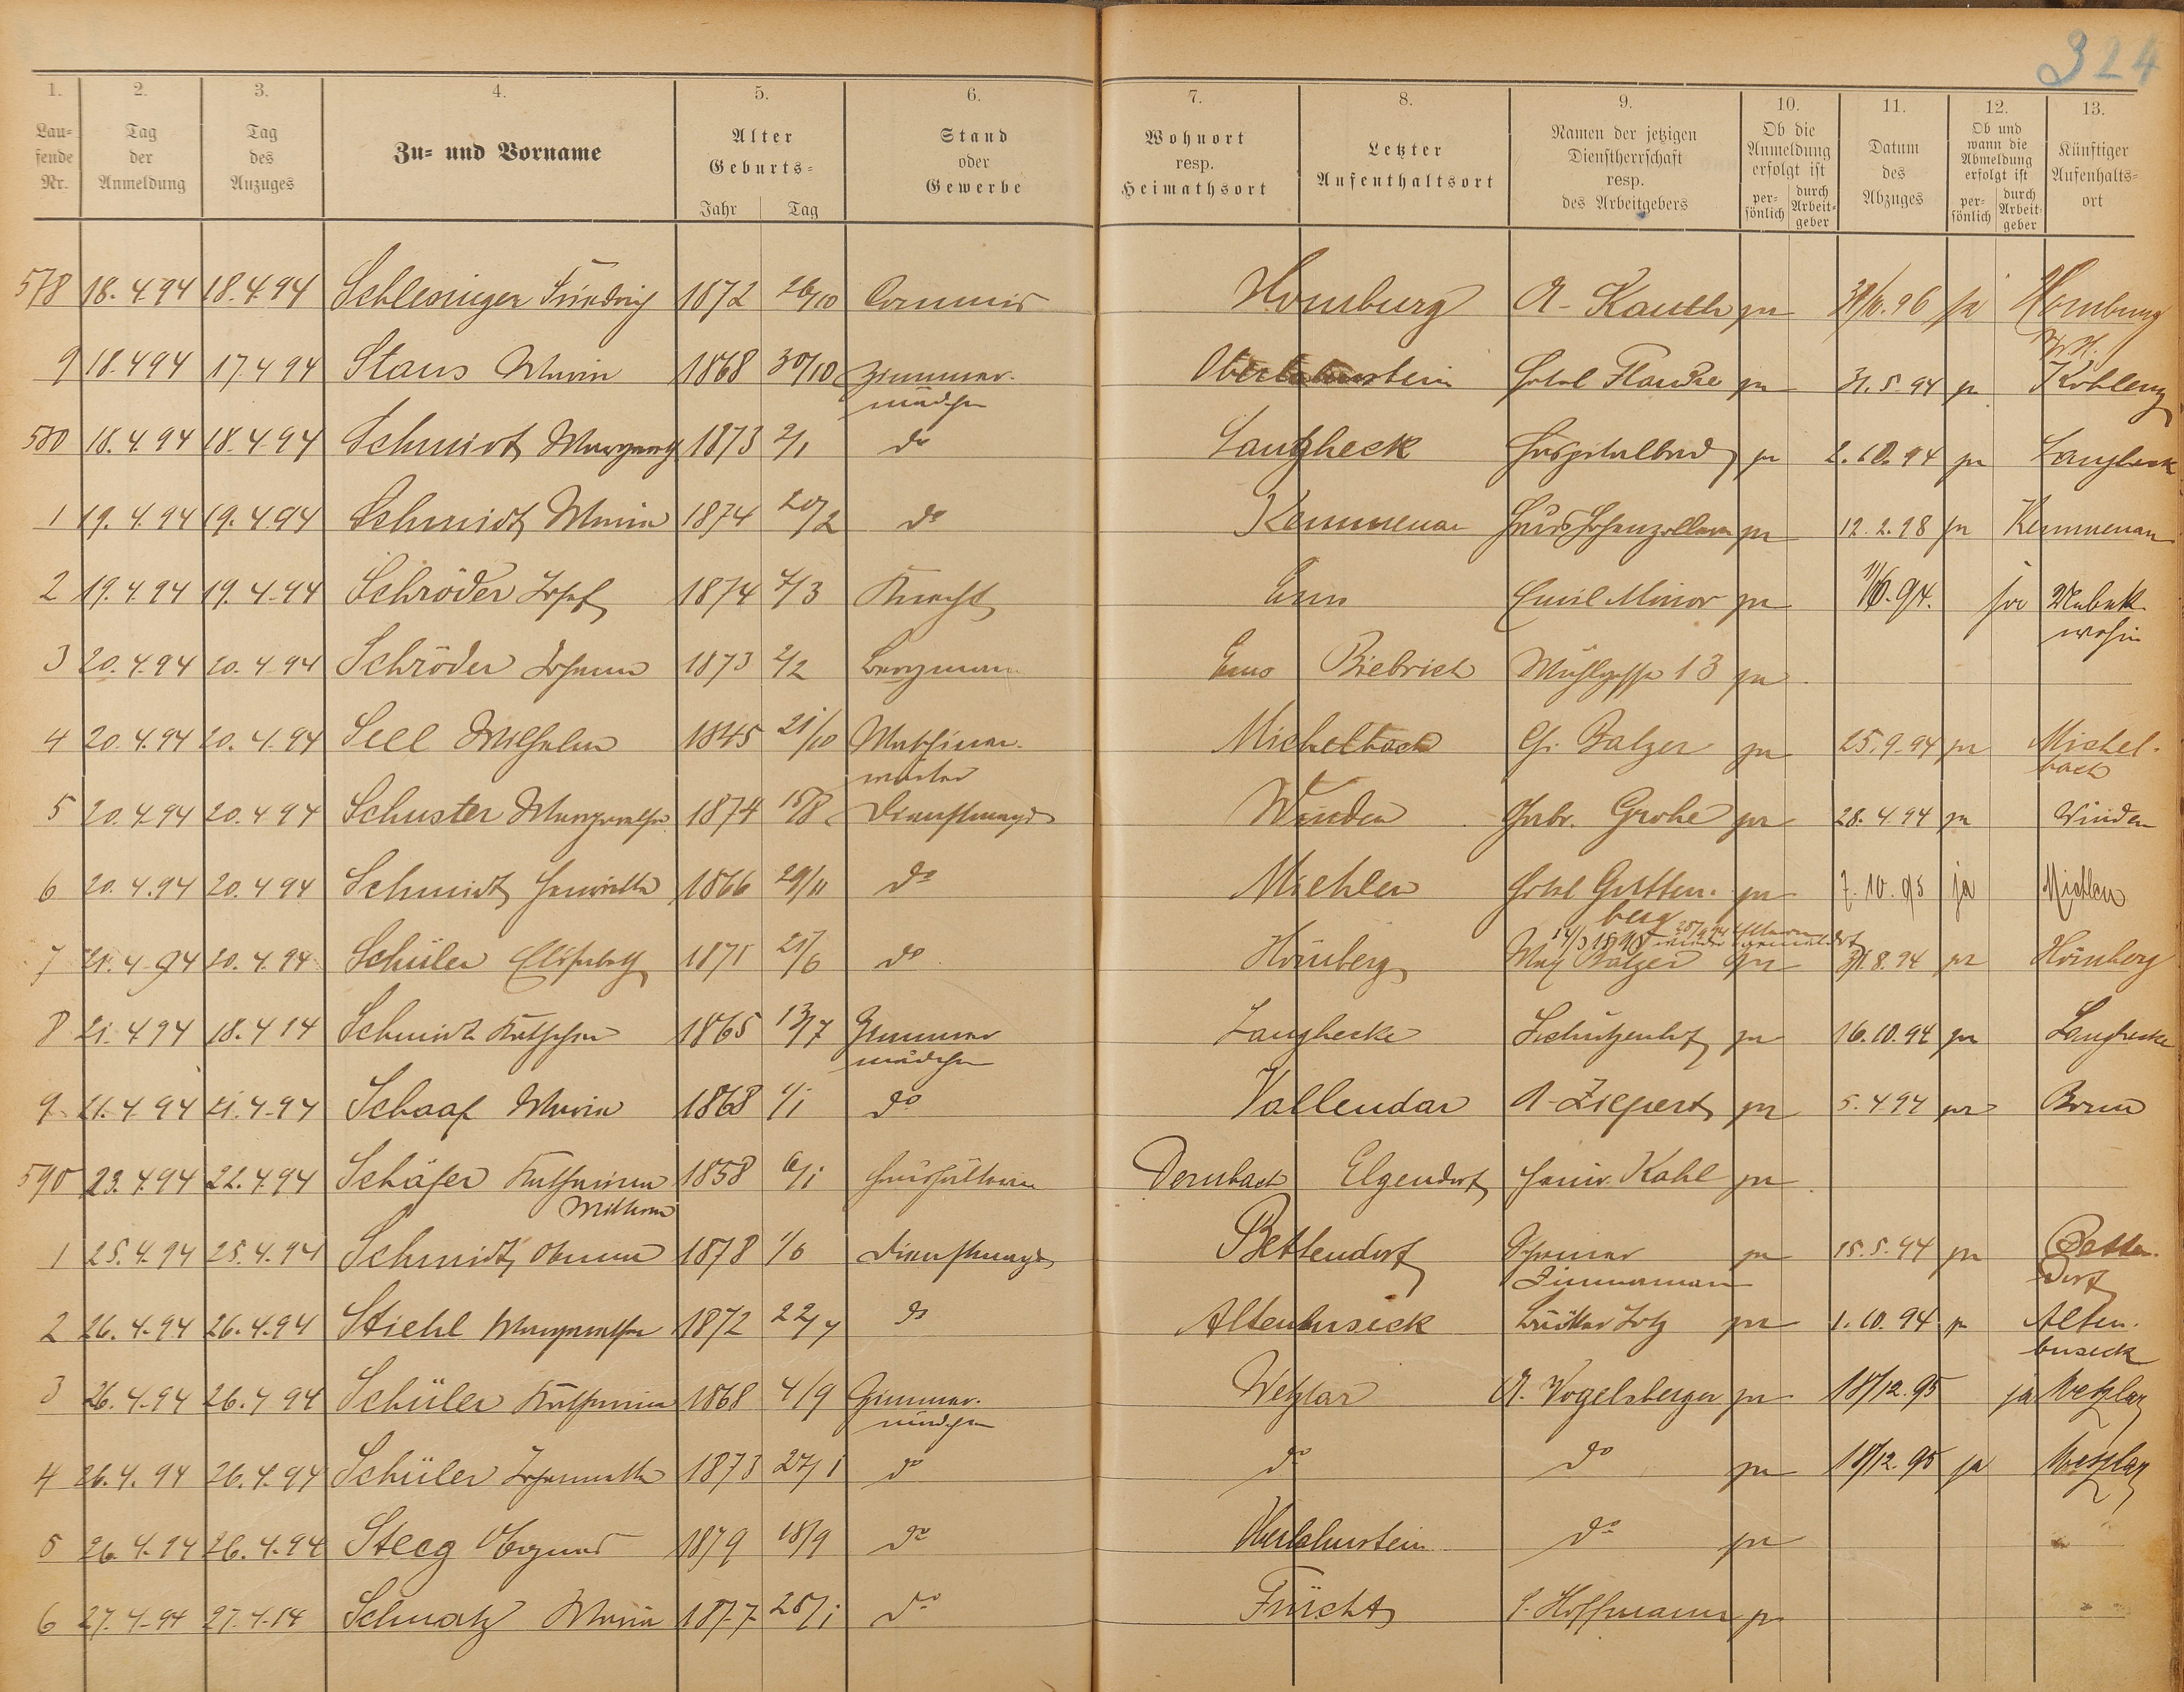 324
1. 2. 3. 4. 5. 6. 7. 8. 9. 10. 11. 12. 13.
Lau=
fende
Nr.
Tag
der
Anmeldung
Tag
des
Anzuges
Zu= und Vorname
Alter
Geburts=
Jahr Tag
Stand
oder
Gewerbe
Wohnort
resp.
Heimathsort
Letzter
Aufenthaltsort
Namen der jetzigen
Dienstherrschaft
resp.
des Arbeitgebers
Ob die
Anmeldung
erfolgt ist
per-
sönlich
durch
Arbeit=
geber
Datum
des
Abzuges
Ob und
wann die
Abmeldung
erfolgt ist
per-
sönlich
durch
Arbeit=
geber
Künftiger
Aufenhalts=
ort
578 18.4.94 18.4.94 Schlesinger Friedrich 1872 26/10 Commis Homburg A. Kauth ja 96 ja Homburg
9 18.4 94 17.4 94 Staus Maria 1868 30/10 Zimmer- Oberlahnstein Hotel Flandre ja 31.5.94 ja Koblenz
mädchen
580 18.4.94 18.4.94 Schmidt 1873 2/1 do Langheck Hospitalbad ja 2.10.94 ja Langheck
1 19.4.94 19.4.94 Schmidt Maria 1874 20/2 do Kemmenau Haus Hohenzollern ja 12.2.98 ja Kemmenau
2 19.4.94 19.4.94 Schröder Josef 1874 7/3 Knecht Ems Emil Minor ja 11/6.94. ja Unbek.
wohin
3 20.4.94 20.4.94 Schröder Johann 1873 2/2 Bergmann Ems Biebrich Mühlgasse 13 ja
4 20.4.94 20.4.94 Sell Wilhelm 1845 21/10 Maschinen- Michelbach Balzer ja 25.9.94 ja Michel-
wärter bach
5 20.4.94 20.4 94 Schuster Margarethe 1874 15/8 Dienstmagd Winden Gebr. Grohe ja 28.4.94 ja Winden
6 20.4.94 20.4 94 Schmidt Henriette 1866 29/11 do Miehlen Hotel Gutten- ja 7.10.95 ja Miehlen
berg
7 21.4.94 20.4.94 Schüler Elisabeth 1871 21/6 do Hömberg Max Balzer ja 31.8.94 ja Hömberg
8 21.4 94 18.4 94 Schmidt Kätchen 1865 13/7 Zimmer Langhecke Schützenhof ja 16.10.94 ja Langhecke
mädchen
9 21.4 94 21.4.94 Schaaf Maria 1868 1/1 do Vallendar A. Ziepert ja 5.4.94 ja Bonn
590 23.4.94 22.4.94 Schäfer Katharina 1858 6/1 Haushälterin Dernbach Elgendorf Heinr. Kahl ja
Wittwe
1 25.4.94 25.4.94 Schmidt Anna 1878 1/6 Dienstmagd Bettendorf Schreiner ja 15.5.94 ja Betten-
Zimmermann dorf
2 26.4.94 26.4.94 Stiehl Margarethe 1872 22/7 do Altenbuseck ja 1.10.94 ja Alten-
buseck
3 26.4.94 26.4 94 Schüler Katharina 1868 4/9 Zimmer- Wetzlar A. Vogelsberger ja 18/12.95 ja Wetzlar
mädchen
4 26.4.94 26.4.94 Schüler Johannette 1873 27/1 do do do ja 18/12.95 ja Wetzlar
5 26.4.94 26.4.94 Steeg 1879 18/9 do Oberlahnstein do ja
6 27.4.94 27.4.94 Schmatz Maria 1877 28/1 do Frücht Hoffmann ja